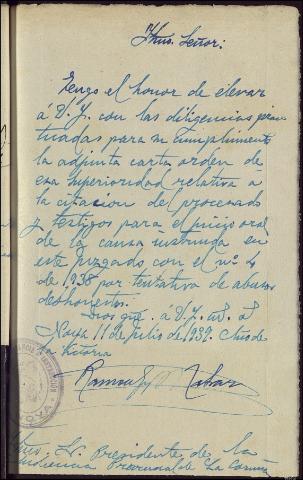 Ilmo. Señor:
Tengo el honor de elevar
á V. I. con las diligencias prac
ticadas para su cumplimiento
la adjunta carta orden de
esa Superioridad relativa á
la citacion de procesado
y testigos para el juicio oral
de la causa instruida en
este juzgado con el nº 4
de 1938 por tentativa de abusos
deshonestos.
Dios gue. á V. I. m. a.
Noya 11 de julio de 1939. Año de
la Victoria
Ramon
Ilmo. Sr. Presidente de la
Audiencia Provincial de La Coruña